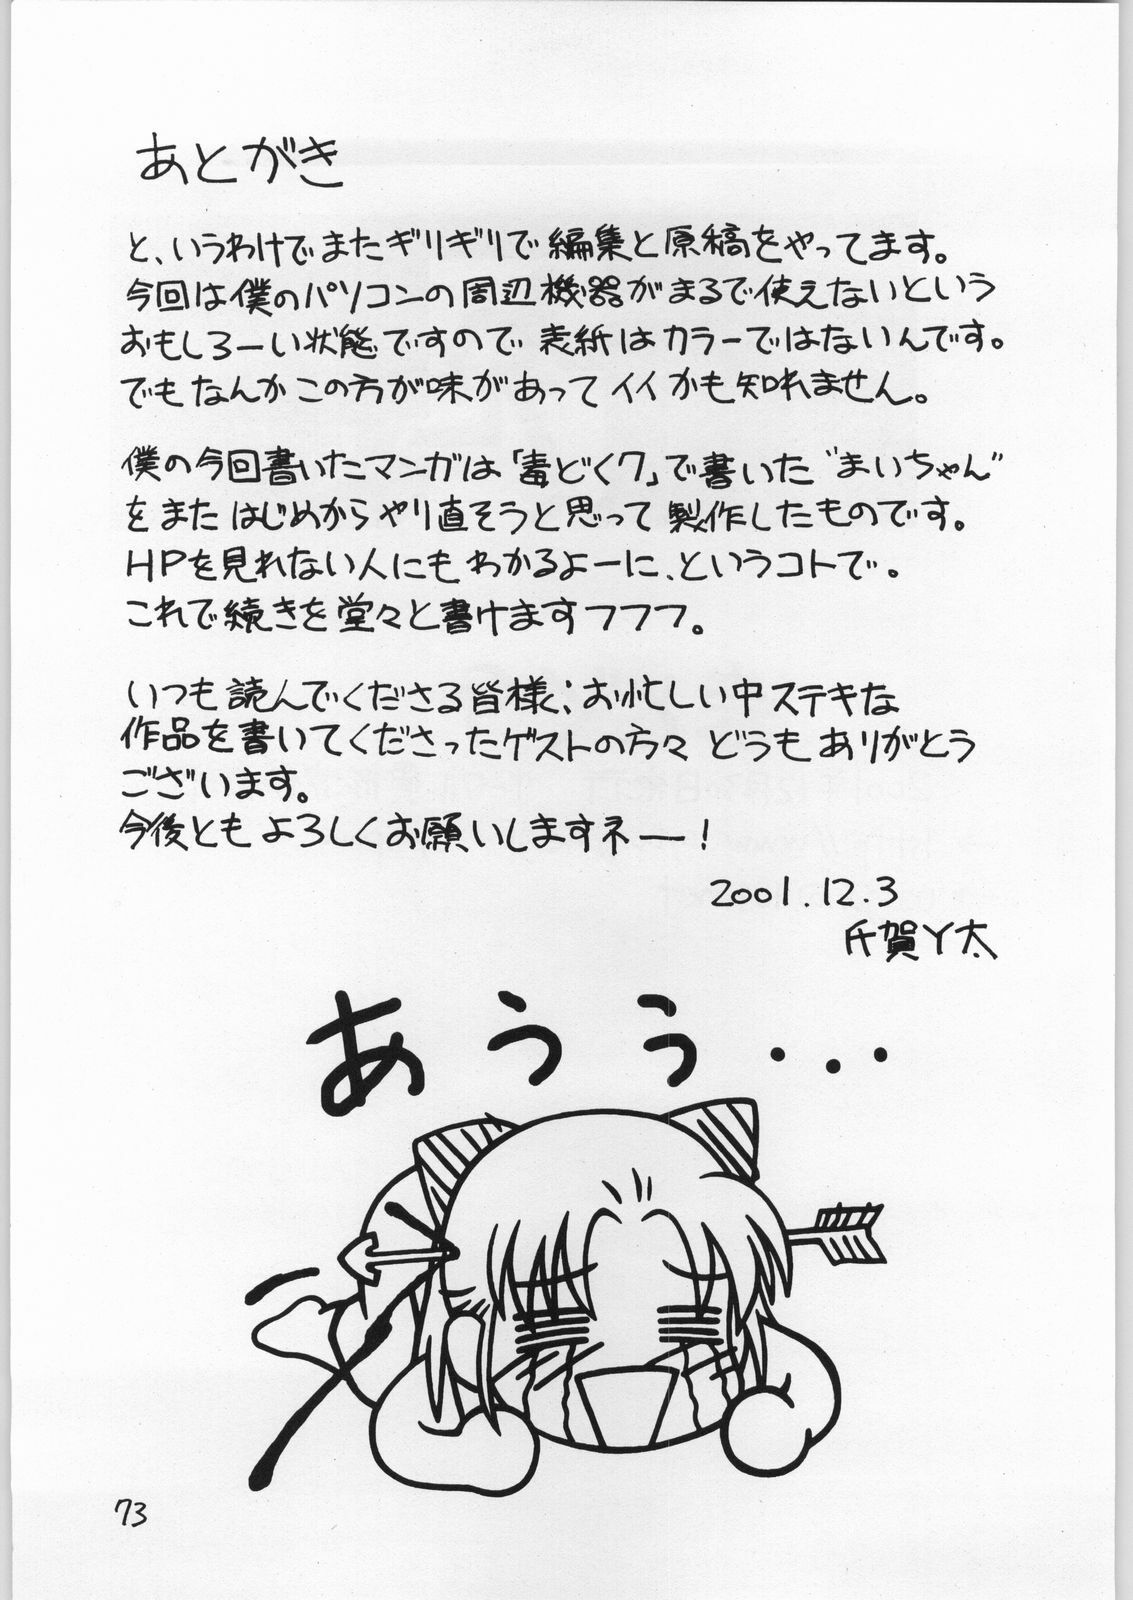 あとがき
と、いうわけでまたギリギリで編集と原稿をやってます。
今回は僕のパソコンの周辺機器がまるで使えないという
おもしろーい状態ですので 表紙はカラーではないんです。
でもなんかこの方が味があってイイかも知れません。
僕の今回書いたマンガは「毒どく7」で書いた“まいちゃん”
をまた はじめからやり直そうと思って 製作したものです。
HPを見れない人にもわかるよーに、というコトで。
これで続きを堂々と書けますフフフ。
いつも読んでくださる皆様;お忙しい中ステキな
作品を書いてくださったゲストの方々 どうもありがとう
ございます。
今後ともよろしくお願いしますネー!
2001.12.3
賀丫太
あうぅ・・・
73